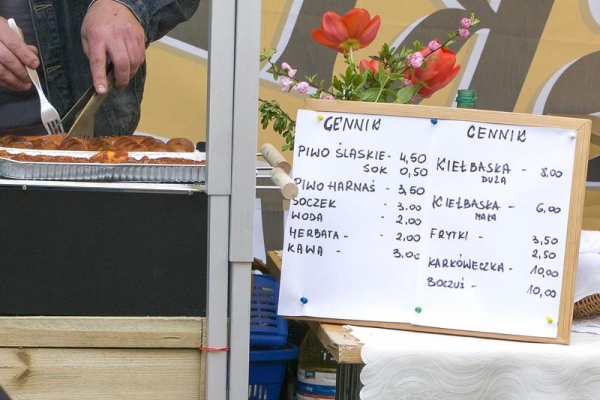 CENNIK
PIWO ŚLĄSKIE - 4,50
SOK 0,50
PIWO HARNAŚ - 3,50
SOCZEK - 3.00
WODA - 2,00
HERBATA - - 2,00
KAWA - 3,00
CENNIK
KIEŁBASKA - 8,00
DUŻA
KIEŁBASKA - 6,00
MAŁA
FRYTKI - 3,50
2,50
KARKÓWECZKA - 10,00
BOCZUŚ - 10,00